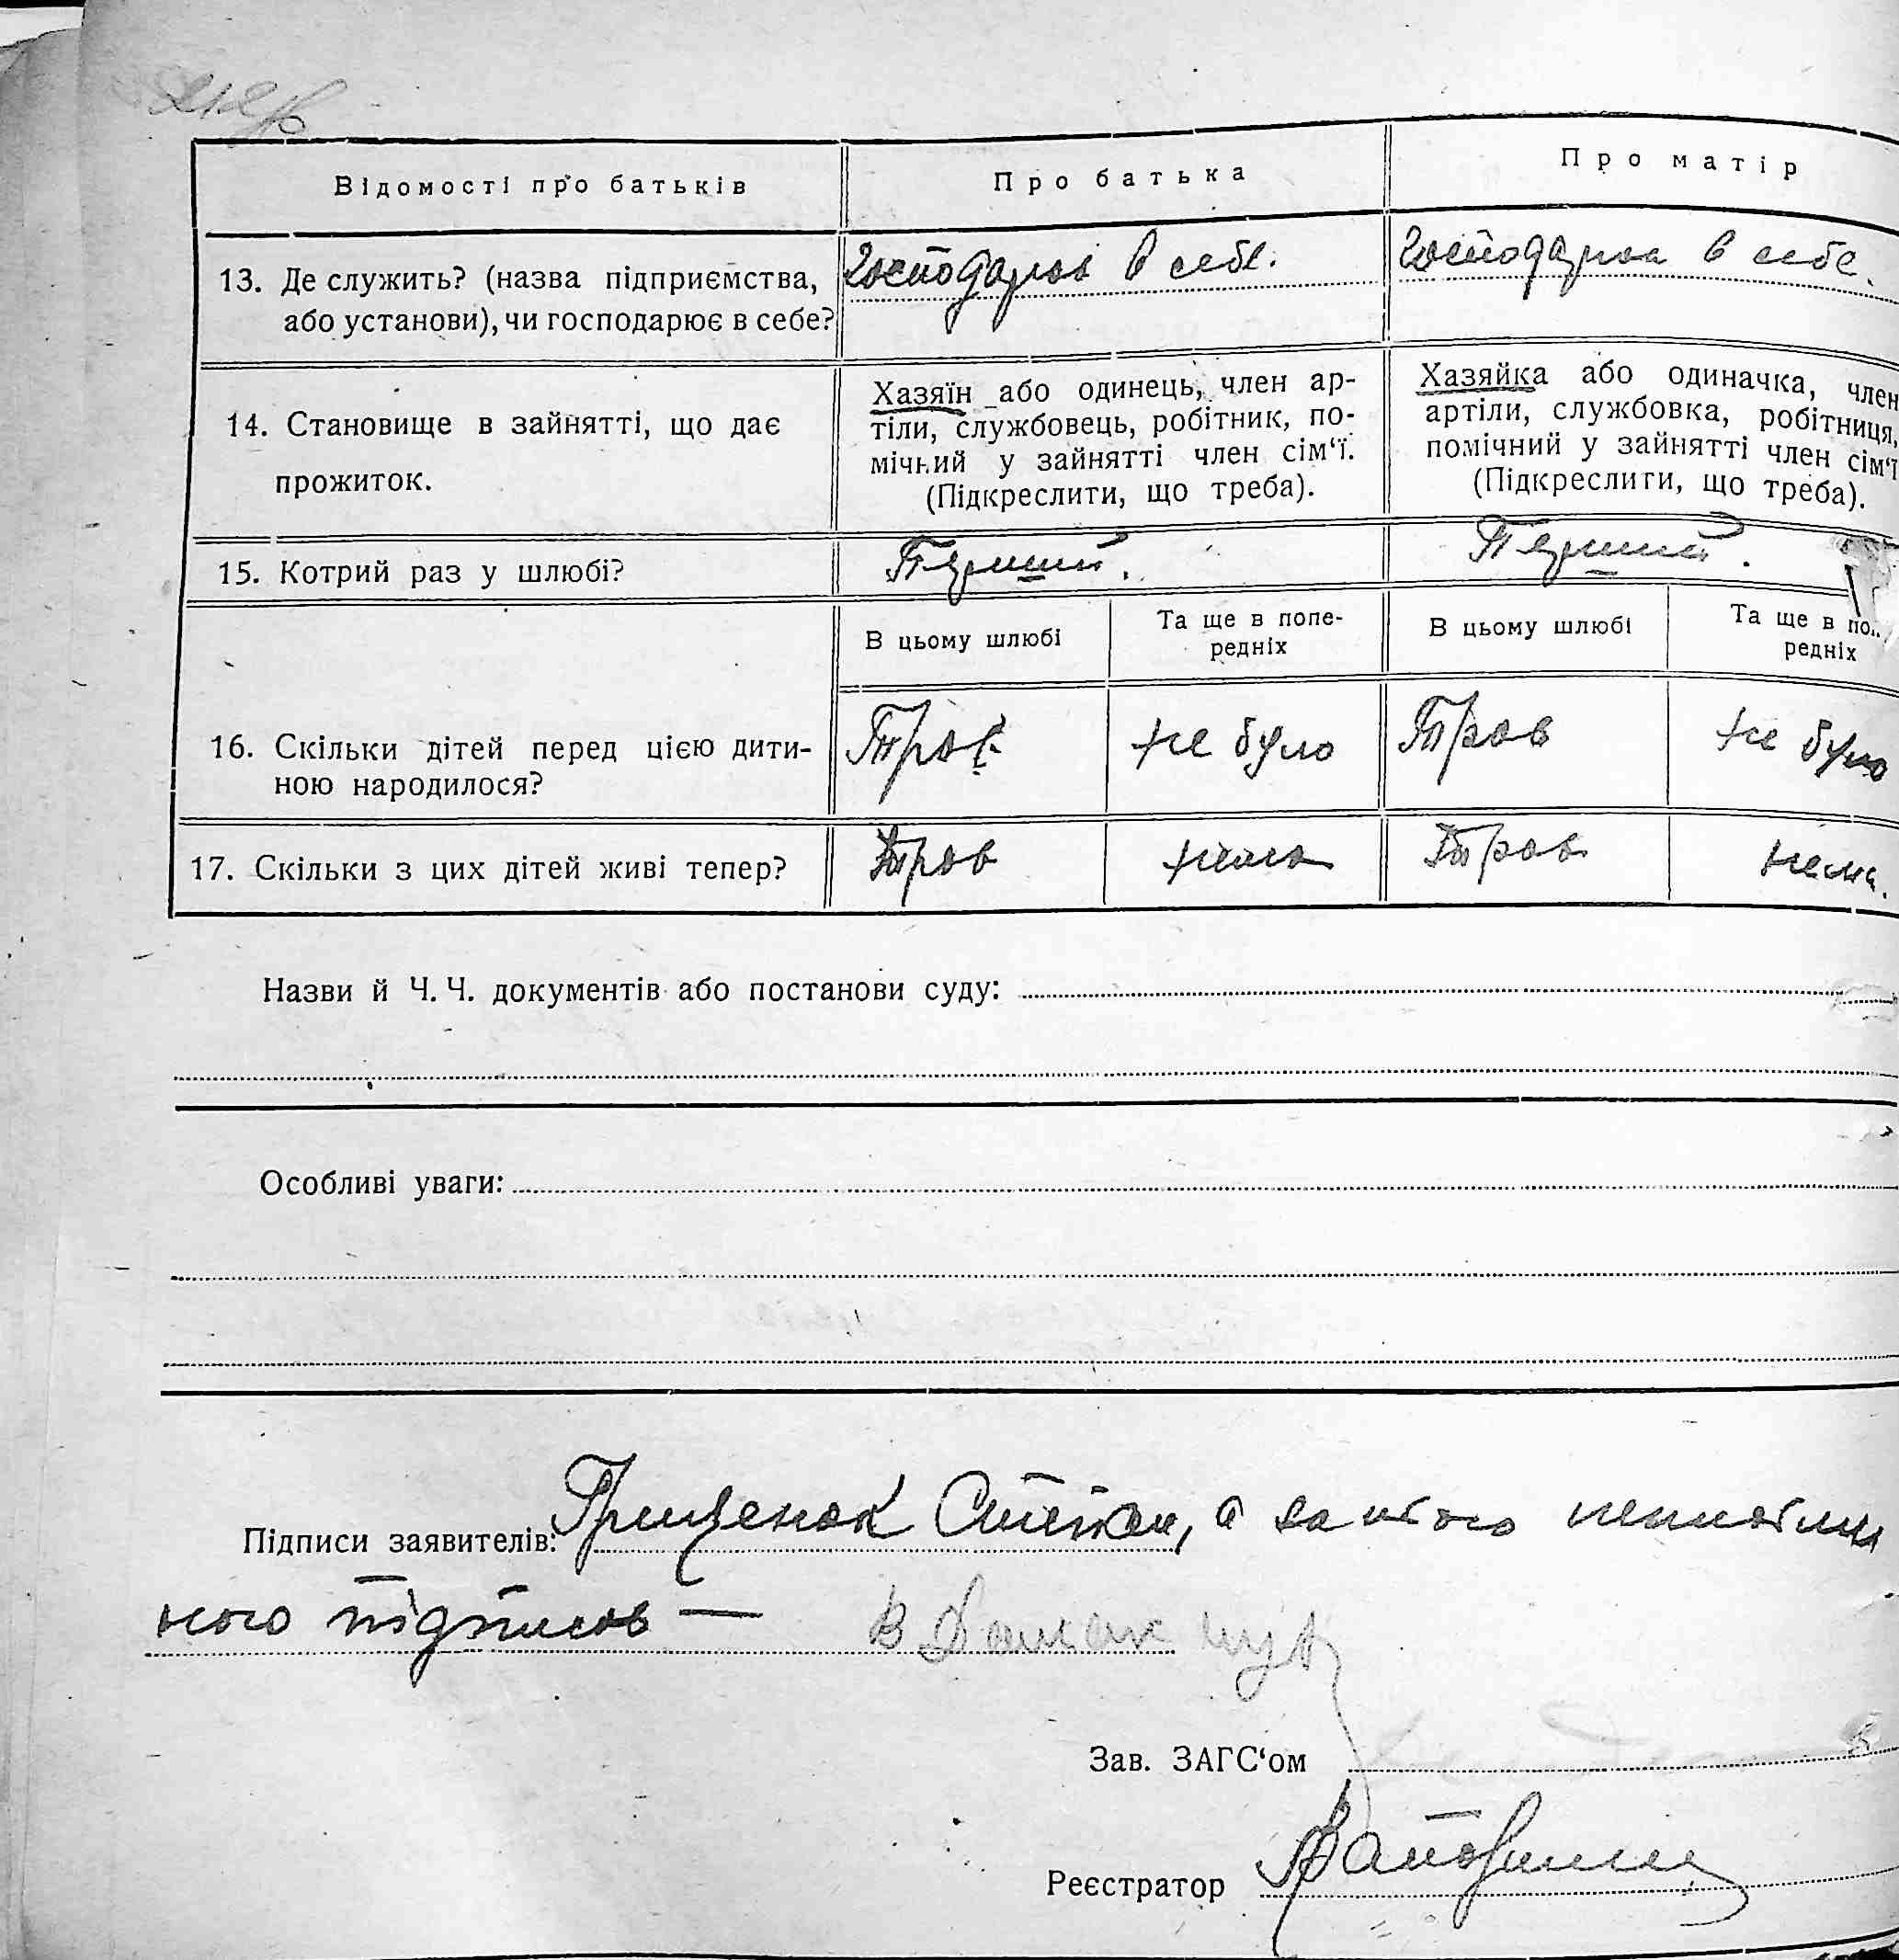 Відомості про батьків
Про батька
Про матір
13. Де служить? (назва підприємства, або установи), чи господарює в себе?
Господарює в себе.
Господарює в себе.
14. Становище в зайнятті, що дає прожиток.
Хазяїн або одинець, член ар-
тіли, службовець, робітник, по-
мічний у зайнятті член сім‘ї.
(Підкреслити, що треба).
Хазяйка або одиначка, член
артіли, службовка, робітниця,
помічний у зайнятті член сім‘ї
(Підкреслити, що треба).
15. Котрий раз у шлюбі?
Перший.
Перший.
В цьому шлюбі
Та ще в попе-
редніх
В цьому шлюбі
Та ще в по
редніх
16. Скільки дітей перед цією дити-
ною народилося?
Троє
не було
Троє
не було
17. Скільки з цих дітей живі тепер?
Троє
нема
Троє
нема.
Назви й Ч. Ч. документів або постанови суду:
Особливі уваги:
Підписи заявителів: Грищенок Степан, а за його неписьмен
ного підписав —
Зав. ЗАГС‘ом
Реєстратор